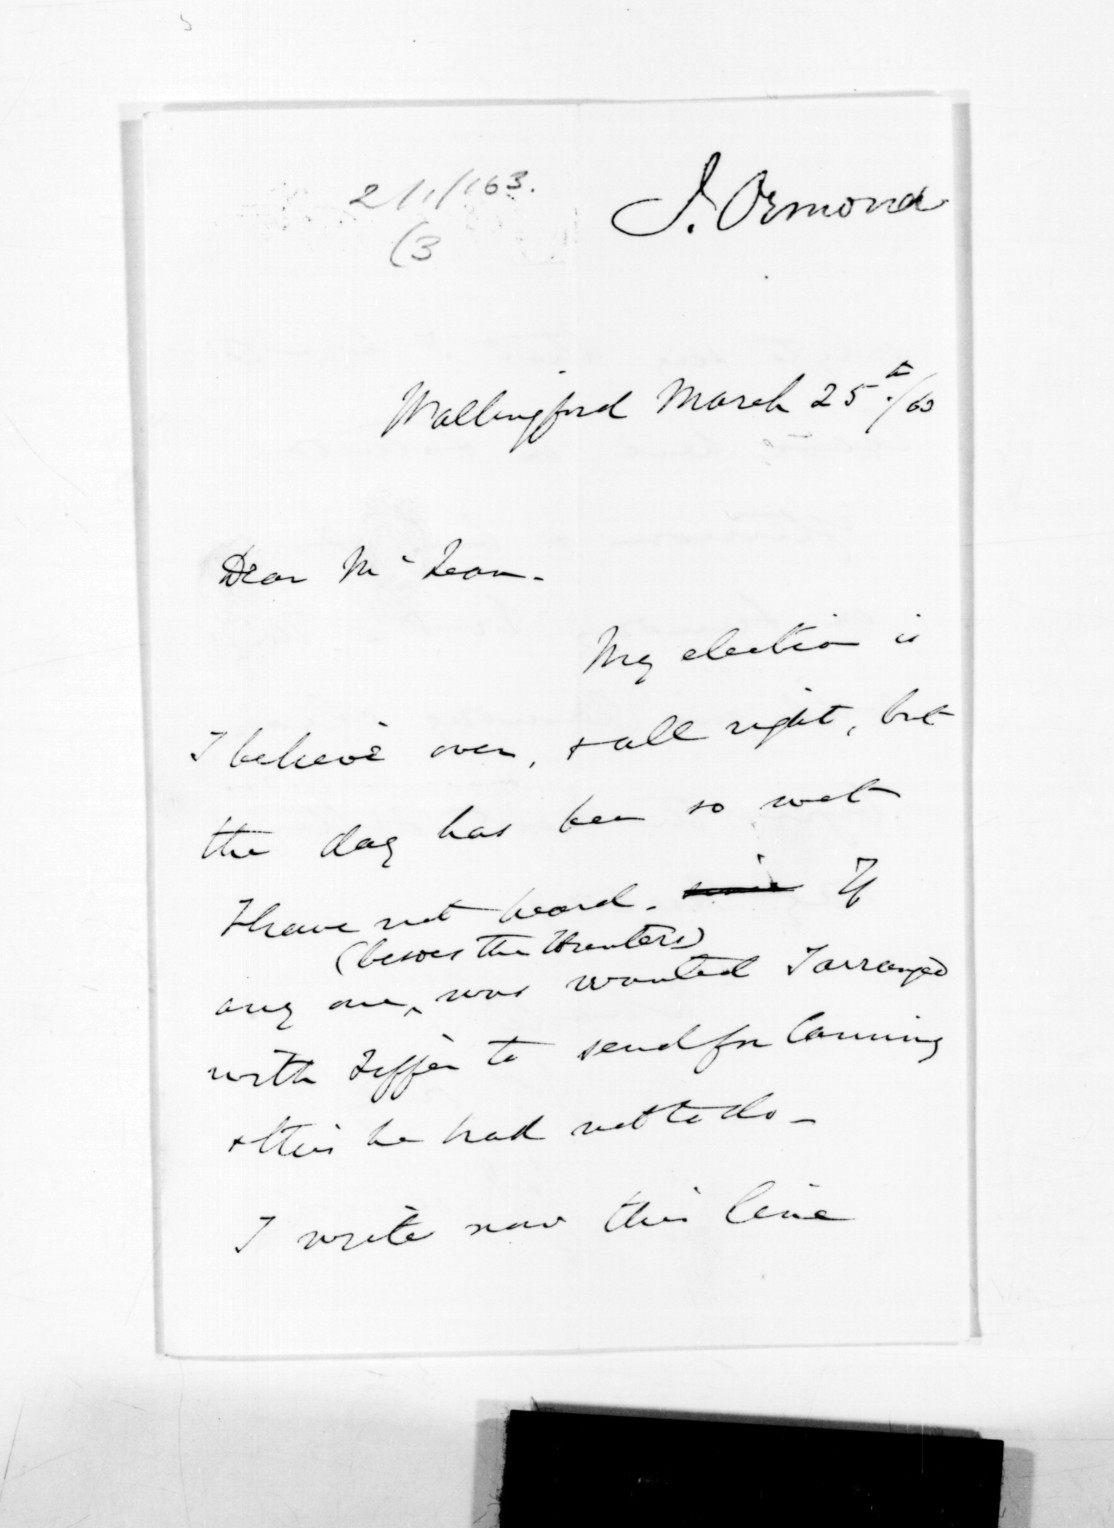 2/1/163.
(3
J. Ormond
Wallingford March 25th/63
Dear McLean.
My election is
I believe over, & all right, but
the day has been so wet
I have not heard. If
(besides the Hunters)
any one, was wanted I arranged
with Tiffen to send for Canning
& this he had not to do –
I write now this line